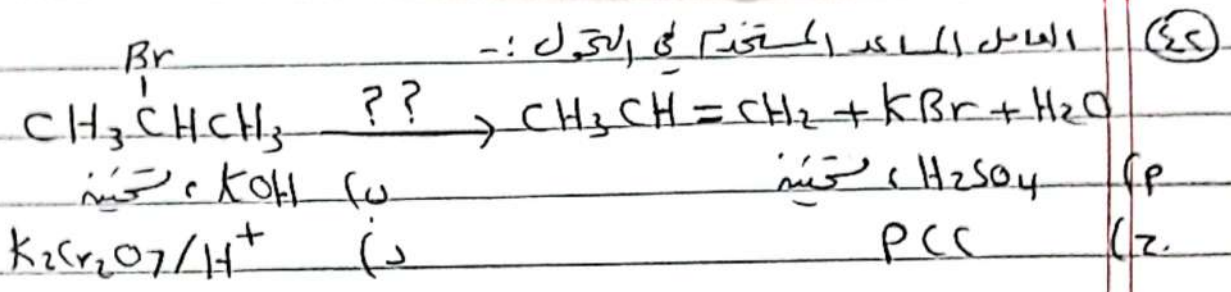 ٤٢) العامل المساعد المستخدم في التحول :-
Br
CH3CHCH3 ??→ CH3CH=CH2 + KBr + H2O
أ) H2SO4 ، تسخين ب) KOH ، تسخين
ج) PCC د) K2Cr2O7/H+